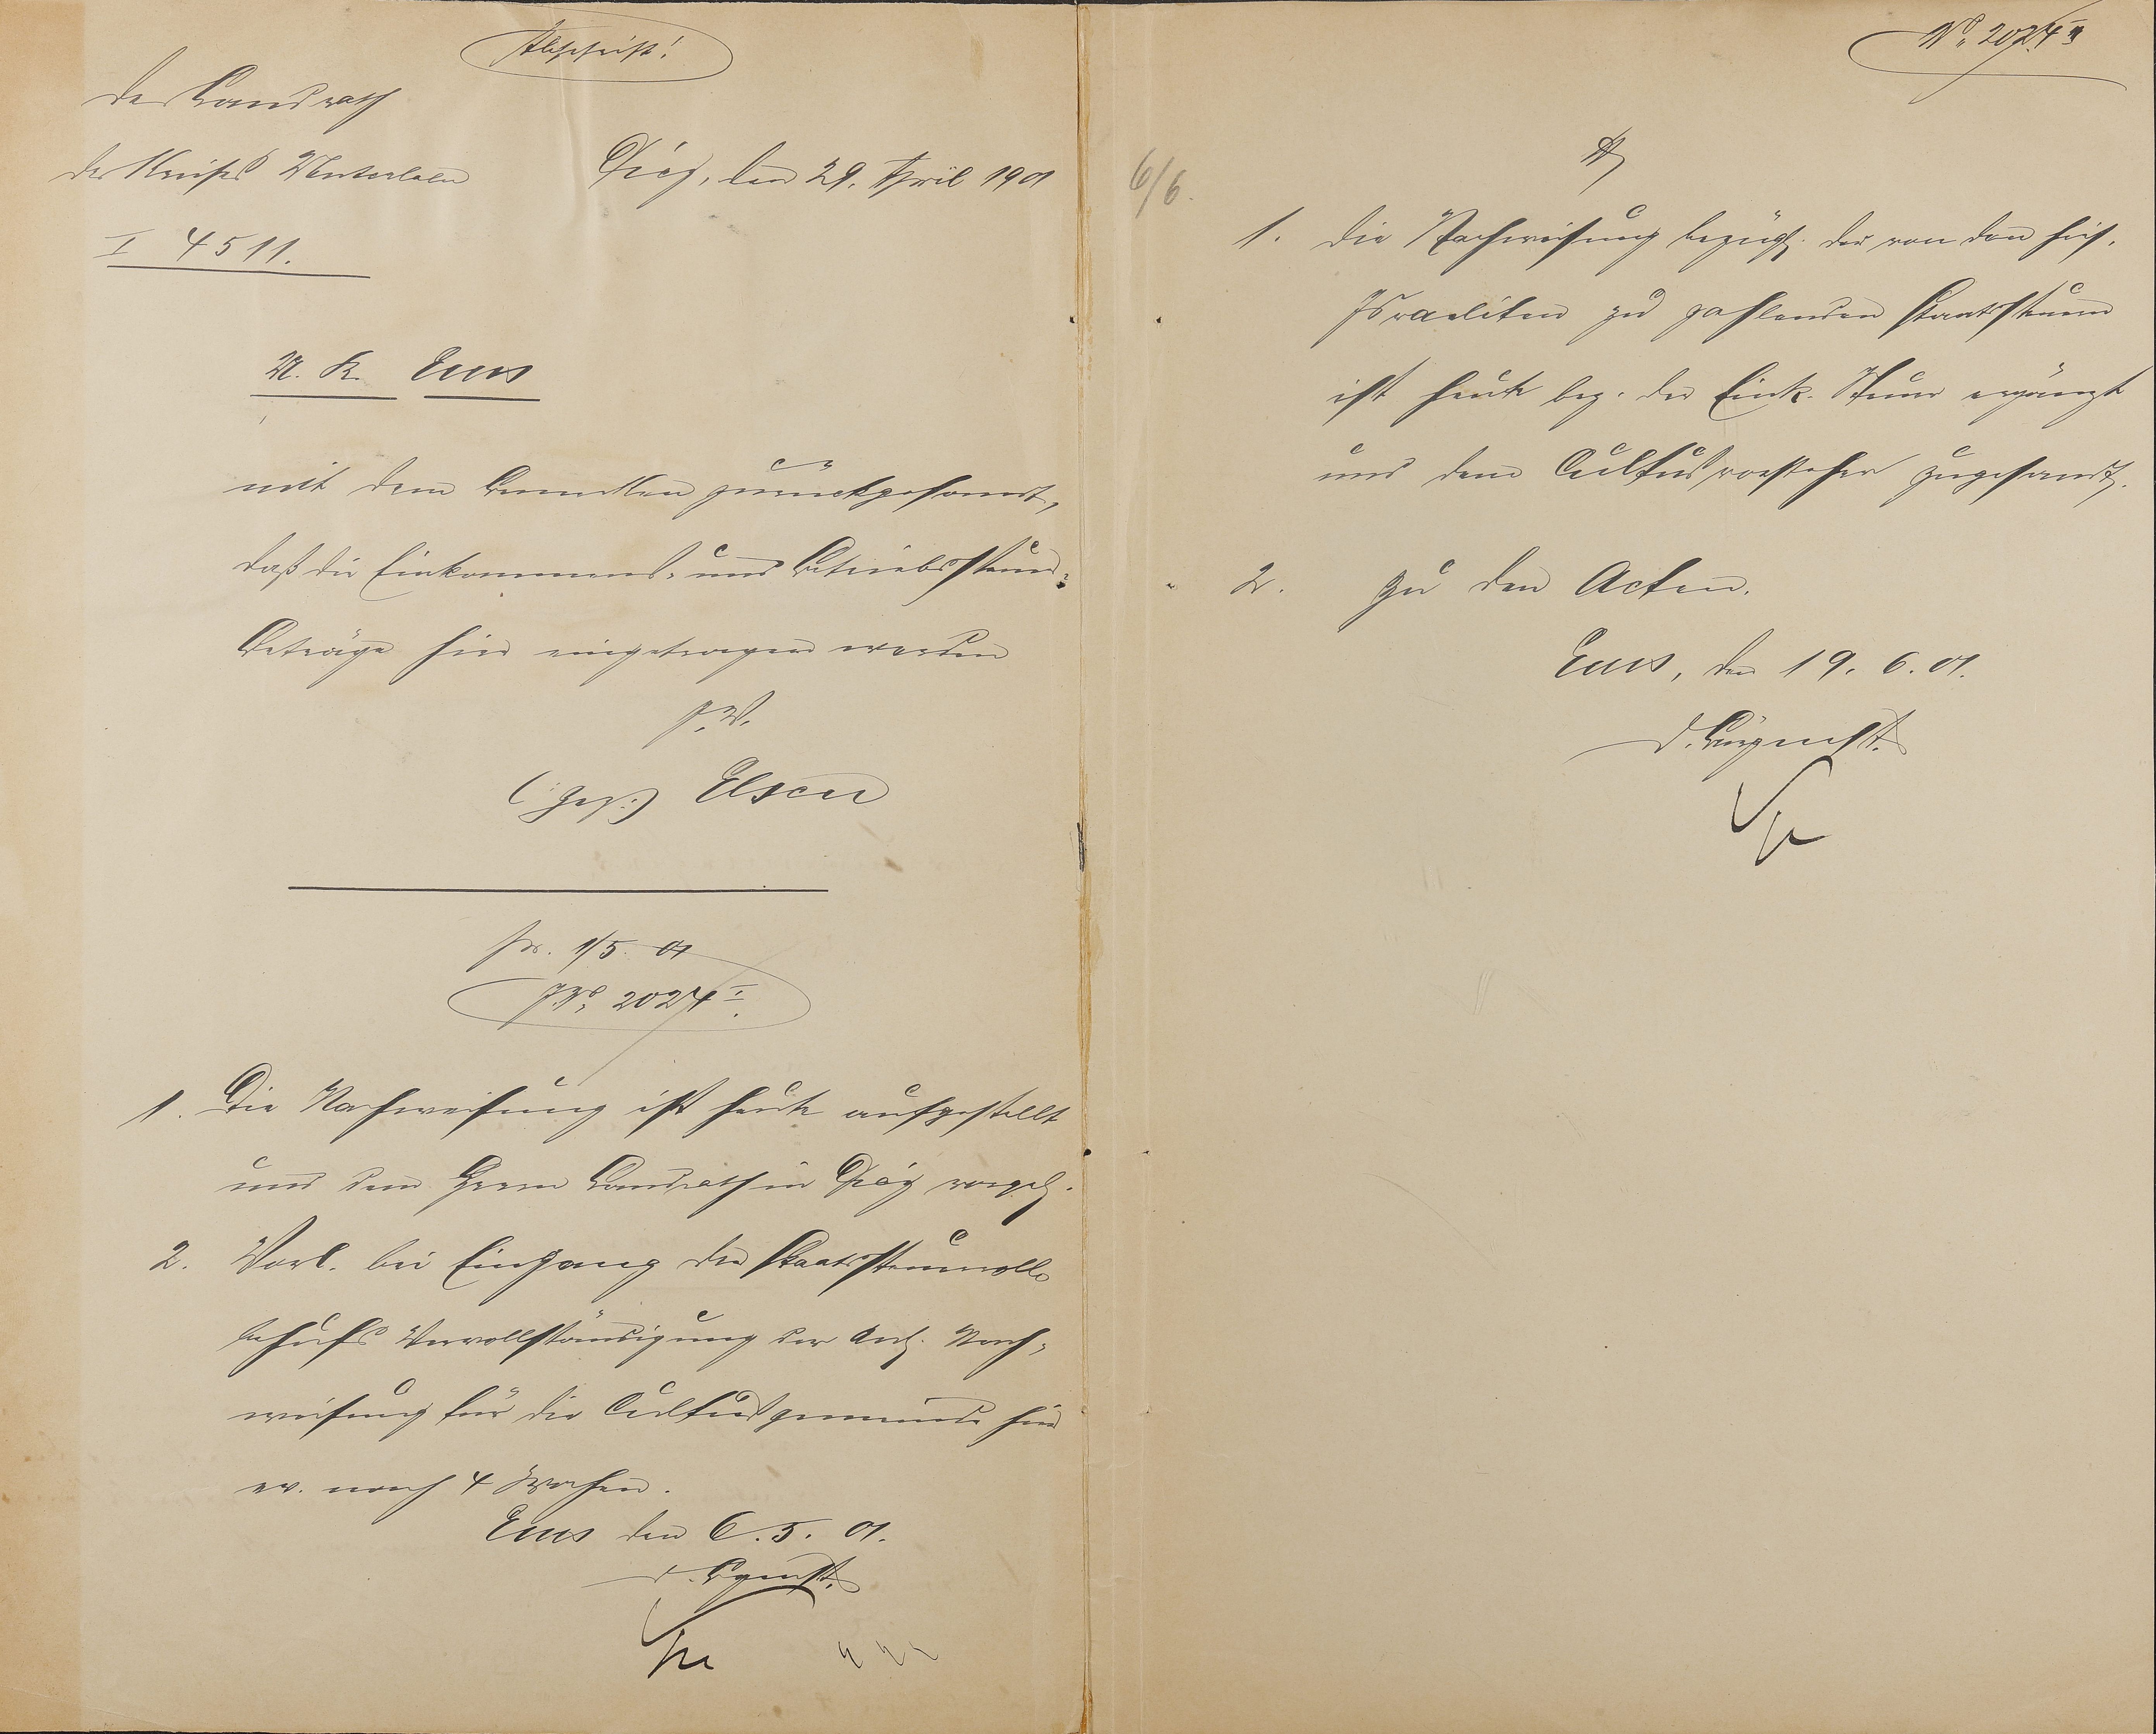 Abschrift!
Der Landrath
des Kreises Unterlahn
Diez, den 29. April 1901
I 4511.
U. R. Ems
mit dem Bemerken zurückgesandt,
daß die Einkommens- und Betriebssteuer-
Beträge hier eingetragen werden
J. V.
(:gez:) Elsen
pr. 1/5. 01
J. No. 2024 I.
1. Die Nachweisung ist heute aufgestellt
und dem Herrn Landrath in Diez vorgel.
2. Vorl. bei Eingang der Staatssteuerrolle
behufs Vervollständigung der Nach-
weisung für die Cultusgemeinde hier
ev. nach 4 Wochen.
Ems den 6. 5. 01.
d. Bgmstr.
No. 2024 II
6/6.
V.
1. Die Nachweisung bezügl. der von den hies.
Israeliten zu zahlenden Staatssteuern
ist heute bez. der Eink. Steuer ergänzt
und dem Cultusvorsteher zugesandt.
2. Zu den Acten.
Ems, den 19. 6. 01.
d. Bürgermstr.